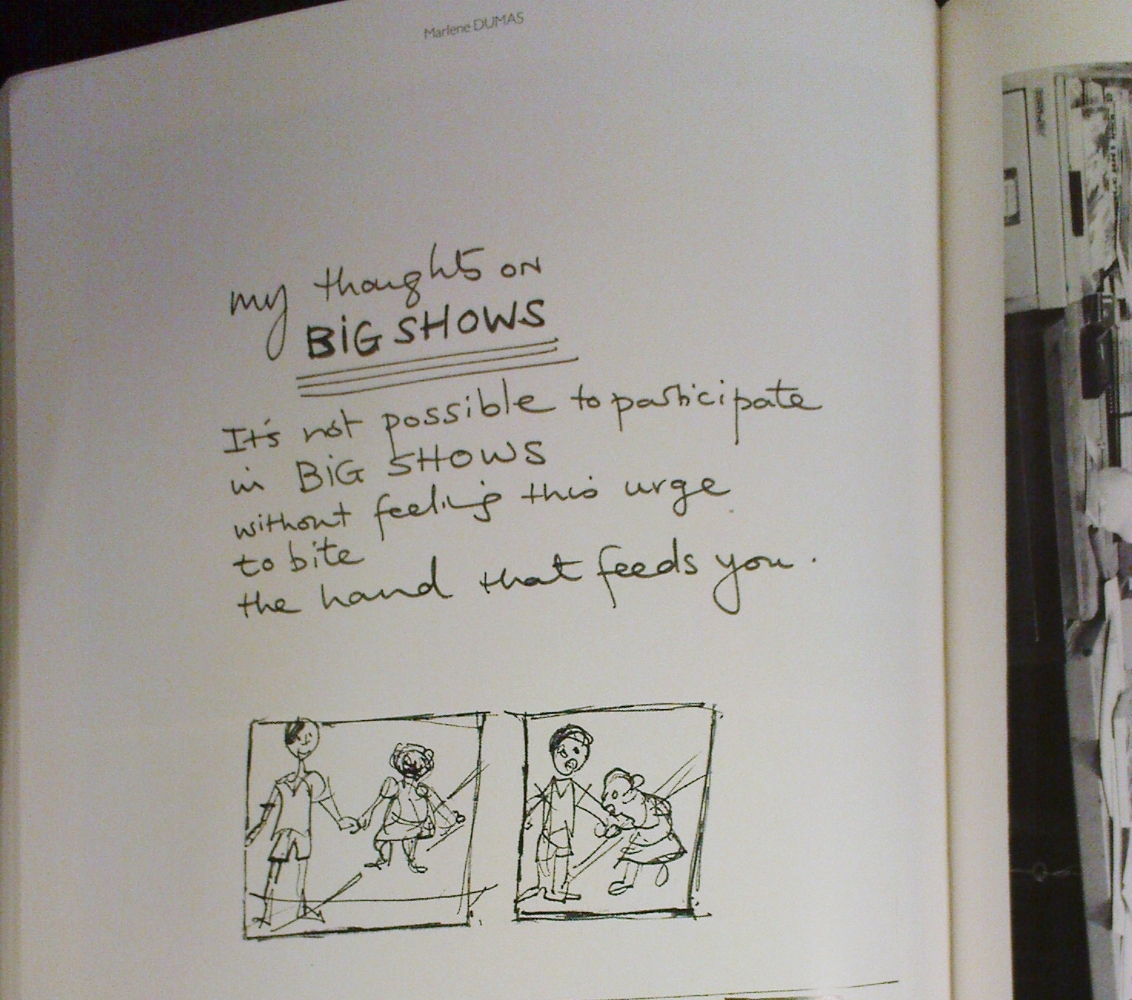 Marlene DUMAS
my thoughts on
BiG SHOWS
It's not possible to participate
in BiG SHOWS
without feeling this urge
to bite
the hand that feeds you.